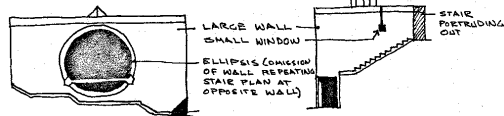 LARGE WALL
SMALL WINDOW
ELLIPSIS (OMISSION
OF WALL REPEATING
STAIR PLAN AT
OPPOSITE WALL)
STAIR
PORTRUDING
OUT